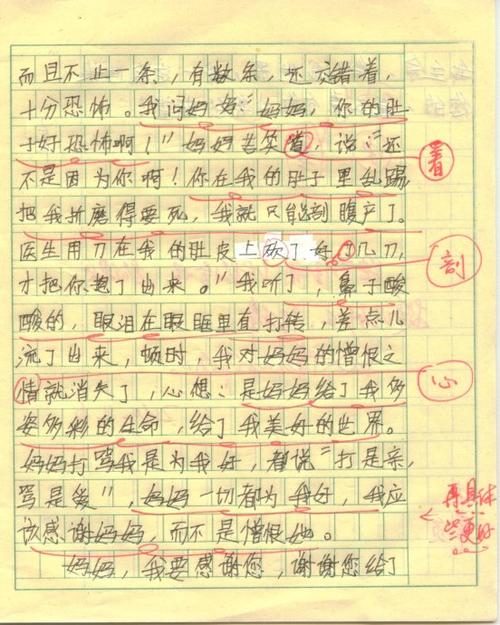 而且不止一条，有数条，还交错着，
十分恐怖。我问妈妈“妈妈，你的肚
子好恐怖啊！”妈妈苦笑道，说：“还
着
不是因为你啊！你在我的肚子里乱踢，
把我折磨得要死，我就只能剖腹产了。
医生用刀在我的肚皮上砍了好几刀，
剖
才把你抱了出来。”我听了，鼻子酸
酸的，眼泪在眼眶里直打转，差点儿
流了出来，顿时，我对妈妈的憎恨之
情就消失了，心想：是妈妈给了我多
心
姿多彩的生命，给了我美好的世界。
妈妈打骂我是为我好，都说“打是亲，
骂是爱”，妈妈一切都为我好，我应
该感谢妈妈，而不是憎恨她。
再具体
些更好
妈妈，我要感谢您，谢谢您给了